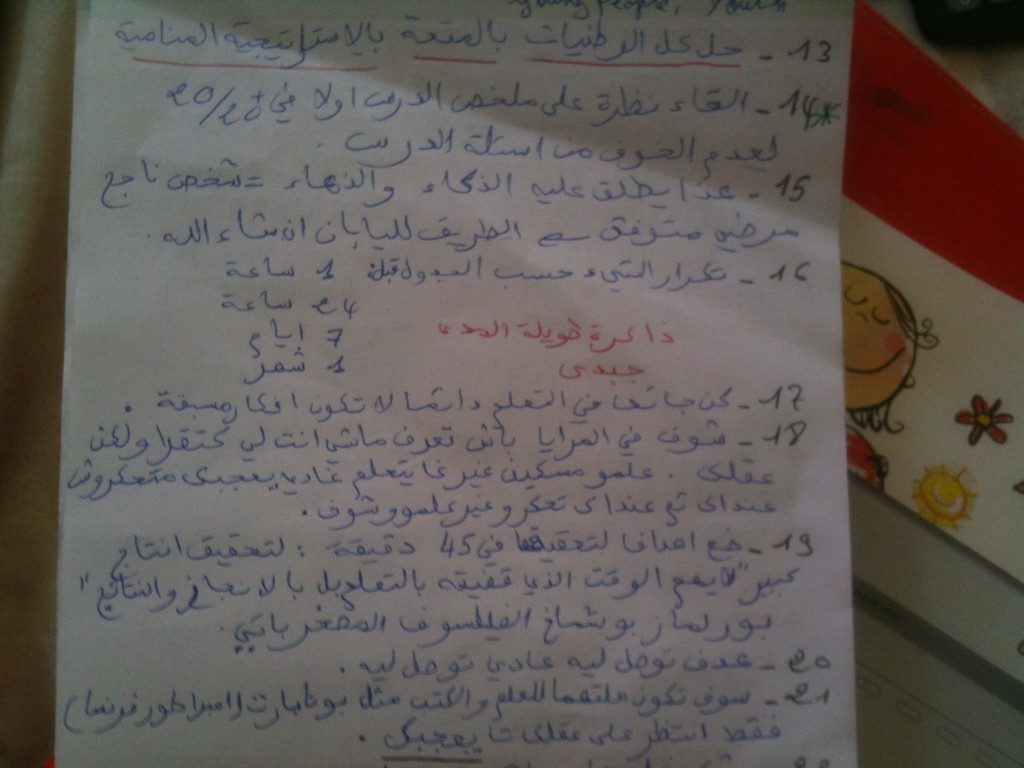 young people, Yours
13 - حل كل الرطنيات بالمتعة بالاستراتيجية المنامية
14* - القاء نظارة على ملخص الدرس اولا في 20/20
لعدم الخوف من اسئلة الدرس .
15 - هذا يطلق عليه الذكاء والدهاء = شخص ناجح
مرضي متوفق في الطريق لليابان ان شاء الله .
16 - تكرار الشيء حسب الجدول قبل: 1 ساعة
24 ساعة
7 ايام
ذاكرة طويلة المدى
1 شهر
جبدى
17 - كن جائعا في التعلم دائما لا تكون افكار مسبقة .
18 - شوف في المرايا باش تعرف ماشي انت لي تحتقرا ولكن
عقلك . علمو مسكين غير غا يتعلم غادي يعجبك متحكروش
عنداك تم عنداك تحكرو غير علمو وشوف .
19 - ضع اهدافا لتحقيقها في 45 دقيقة : لتحقيق انتاج
كبير "لا يهم الوقت الذي قضيته بالتعلم بل بالانجاز والنتائج"
بورلماز بوشماخ الفيلسوف المضغرباتي .
20 - هدف توصل ليه عادي توصل ليه .
21 - سوف تكون ملتهما للعلم والكتب مثل بونابارت (امبراطور فرنسا)
فقط انتظر على عقلك تا يعجبك .